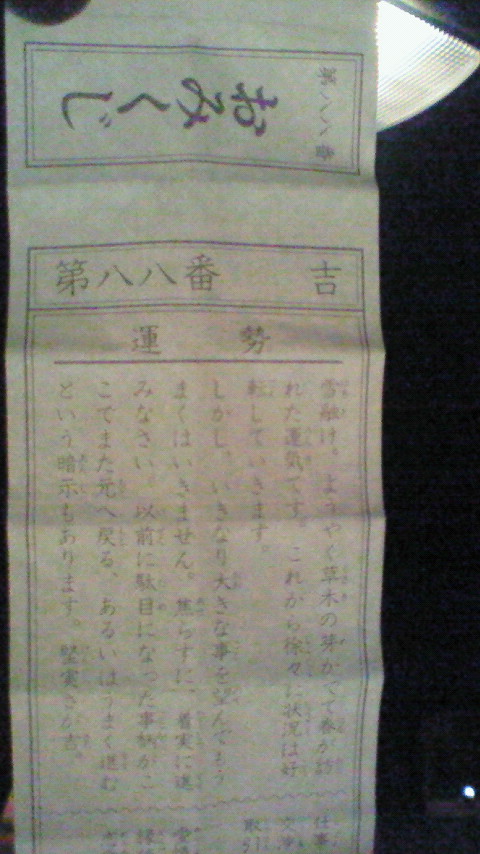 第八八番
おみくじ
第八八番 吉
運勢
雪融け。ようやく草木の芽がでて春が訪
れた運気です。これから徐々に状況は好
転していきます。
しかし。いきなり大きな事を望んでもう
まくはいきません。焦らずに、着実に進
みなさい。以前に駄目になった事柄がこ
こでまた元へ戻る、あるいはうまく進む
という暗示もあります。堅実さが吉。
仕事
交渉
取引